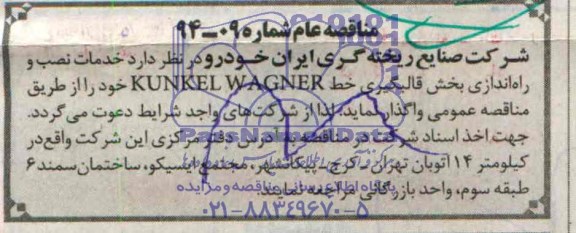 مناقصه عام شماره ۰۹-۹۴
شرکت صنایع ریخته گری ایران خودرو در نظر دارد خدمات نصب و
راه‌اندازی بخش قالبگیری خط KUNKEL WAGNER خود را از طریق
مناقصه عمومی واگذار نماید. لذا از شرکت‌های واجد شرایط دعوت می گردد.
جهت اخذ اسناد شرکت در مناقصه به آدرس دفتر مرکزی این شرکت واقع در
کیلومتر ۱۴ اتوبان تهران - کرج، پیکانشهر، مجتمع اپسیکو، ساختمان سمند ۶
طبقه سوم، واحد بازرگانی مراجعه نمایند.
پایگاه اطلاع رسانی مناقصه و مزایده
۰۲۱-۸۸۳۴۹۶۷۰-۵